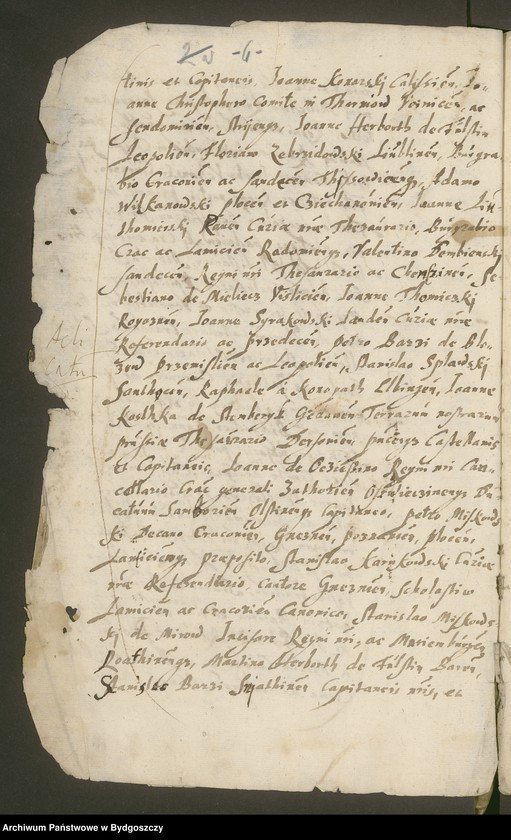 2 -6-
tinis et Capitaneis, Joanne Konarski Calissien, Jo-
anne Christophoro Comite in Tharnow Voinicen, ac
Sendomirien, Strijens, Joanne Herborth de Fulstin
Leopolien, Floriano Zebrzidowski Liublinen, Burgra-
bio Cracovien ac Sandecen Adamo
Wilkanowski plocen et Cziechanovien, Joanne Lut-
thomirski Raven Curiae nrae Thesaurario, Burgrabio
Crac ac Lancicien Radomiens, Valentino Dembienski
Sandecen, Regni nri Thesaurario ac Chencinen, Se-
bestiano de Mieliecz Vislicien, Joanne Thomiczki
Rogoznen, Joanne Syrakowski Landen Curiae nrae
Referendario ac przedecen, petro Barzi de Blo-
zow przemislien ac Leopolien, Stanislao Splawski
Santhocen, Raphaele a Konopath Elbingen, Joanne
Kosthka de Stemberg Gedanen Terrarum nostrarum
prussiae Thesaurario Dersovien, pucens Castellanis
et Capitaneis, Joanne de Ocziessino Regni nri Can-
cellario Crac generali Zathorien Osswieczinens
catuum Sandomirien Olstinens Capitaneo, petro Miskows
ki Decano Cracovien, Gneznen, poznanien, plocen,
Lanciciens praeposito, Stanislao Karnkowski Curiae
nrae Referendario, cantore Gneznen, Scholastico
Lancicien ac Cracovien Canonico, Stanislao Miskows
ki de Mirow Incisore Regni nri, ac Marienburgen
Martino Herborth de Fulstin Baren,
Stanislao Barzi Sniathinen Capitaneis nris, et
Archiwum Państwowe w Bydgoszczy